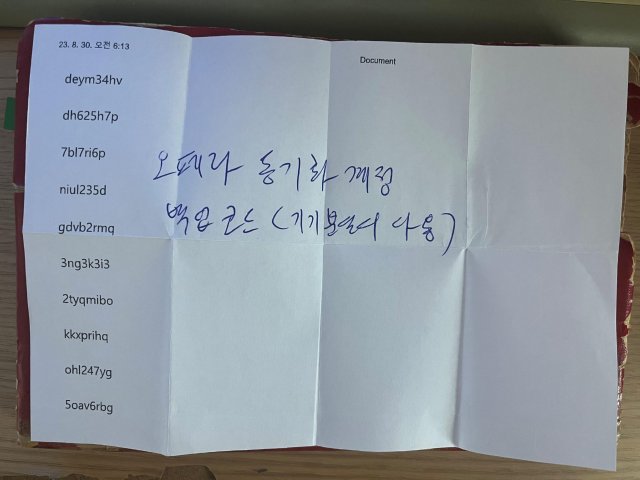 23. 8. 30. 오전 6:13
Document
deym34hv
dh625h7p
7bl7ri6p
niul235d
gdvb2rmq
3ng3k3i3
2tyqmibo
kkxprihq
ohl247yg
5oav6rbg
오페라 동기화 계정
백업 코드 (기기 다음)